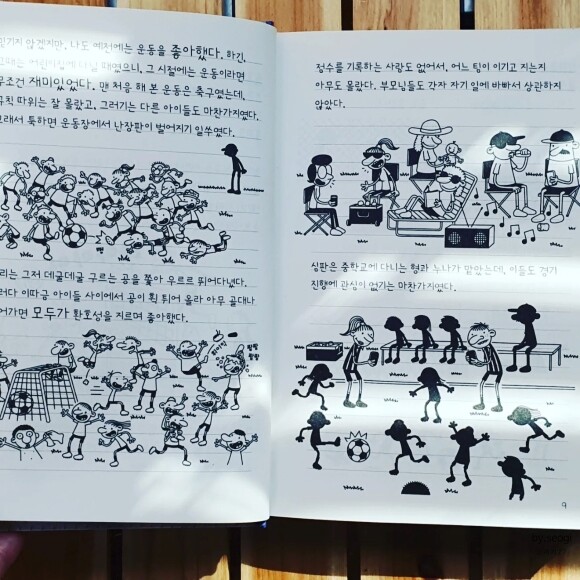 믿기지 않겠지만, 나도 예전에는 운동을 좋아했다. 하긴,
그때는 어린이집에 다닐 때였으니, 그 시절에는 운동이라면
무조건 재미있었다. 맨 처음 해 본 운동은 축구였는데,
규칙 따위는 잘 몰랐고, 그러기는 다른 아이들도 마찬가지였다.
그래서 툭하면 운동장에서 난장판이 벌어지기 일쑤였다.
우리는 그저 데굴데굴 구르는 공을 쫓아 우르르 뛰어다녔다.
그러다 이따금 아이들 사이에서 공이 휙 튀어 올라 아무 골대나
들어가면 모두가 환호성을 지르며 좋아했다.
점수를 기록하는 사람도 없어서, 어느 팀이 이기고 지는지
아무도 몰랐다. 부모님들도 각자 자기 일에 바빠서 상관하지
않았다.
심판은 중학교에 다니는 형과 누나가 맡았는데, 이들도 경기
진행에 관심이 없기는 마찬가지였다.
9